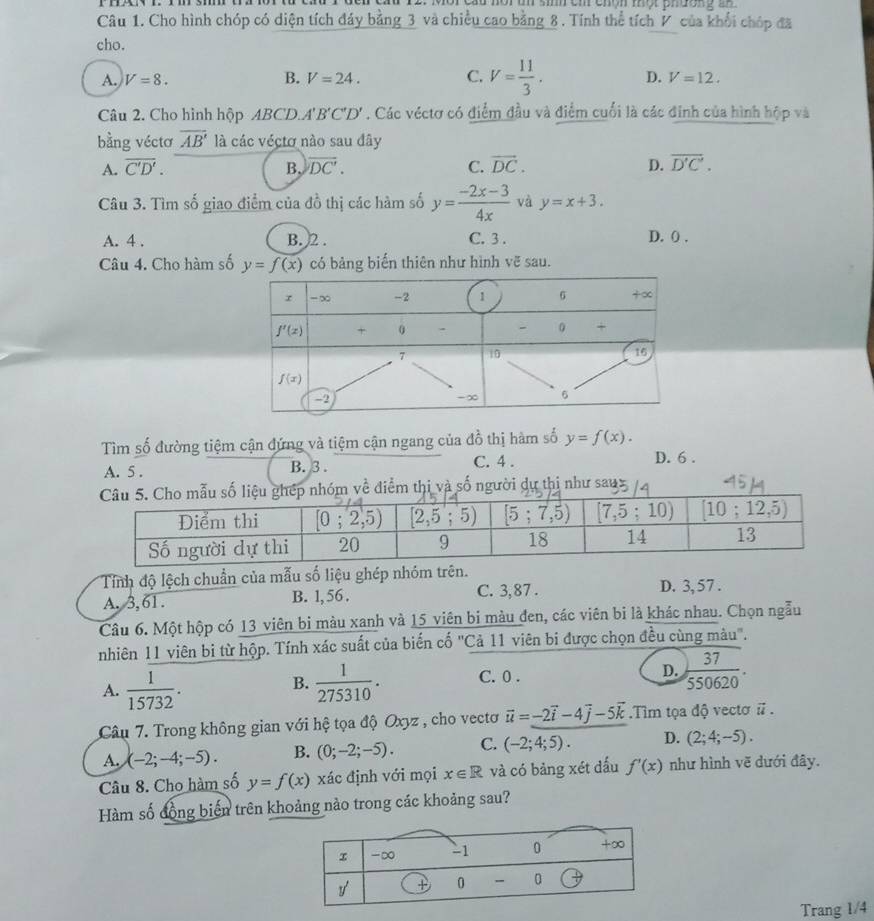 Câu 1. Cho hình chóp có diện tích đáy bằng 3 và chiều cao bằng 8. Tính thể tích V của khối chóp đã
cho.
A. V = 8. B. V = 24. C. V = 11/3. D. V = 12.
Câu 2. Cho hình hộp ABCD.A'B'C'D'. Các véctơ có điểm đầu và điểm cuối là các đỉnh của hình hộp và
bằng véctơ AB' là các véctơ nào sau đây
A. C'D'. B. DC'. C. DC. D. D'C'.
Câu 3. Tìm số giao điểm của đồ thị các hàm số y = (-2x-3)/(4x) và y = x+3.
A. 4. B. 2. C. 3. D. 0.
Câu 4. Cho hàm số y = f(x) có bảng biến thiên như hình vẽ sau.
x -∞ -2 1 6 +∞
f'(x) + 0 - - 0 +
7 10 16
f(x)
-2 -∞ 6
Tìm số đường tiệm cận đứng và tiệm cận ngang của đồ thị hàm số y = f(x).
A. 5. B. 3. C. 4. D. 6.
Câu 5. Cho mẫu số liệu ghép nhóm về điểm thi và số người dự thi như sau:
Điểm thi [0 ; 2,5) [2,5 ; 5) [5 ; 7,5) [7,5 ; 10) [10 ; 12,5)
Số người dự thi 20 9 18 14 13
Tính độ lệch chuẩn của mẫu số liệu ghép nhóm trên.
A. 3,61. B. 1,56. C. 3,87. D. 3,57.
Câu 6. Một hộp có 13 viên bi màu xanh và 15 viên bi màu đen, các viên bi là khác nhau. Chọn ngẫu
nhiên 11 viên bi từ hộp. Tính xác suất của biến cố "Cả 11 viên bi được chọn đều cùng màu".
A. 1/15732. B. 1/275310. C. 0. D. 37/550620.
Câu 7. Trong không gian với hệ tọa độ Oxyz, cho vectơ u = -2i - 4j - 5k .Tìm tọa độ vectơ u.
A. (-2;-4;-5). B. (0;-2;-5). C. (-2;4;5). D. (2;4;-5).
Câu 8. Cho hàm số y = f(x) xác định với mọi x ∈ ℝ và có bảng xét dấu f'(x) như hình vẽ dưới đây.
Hàm số đồng biến trên khoảng nào trong các khoảng sau?
x -∞ -1 0 +∞
y' + 0 - 0 +
Trang 1/4